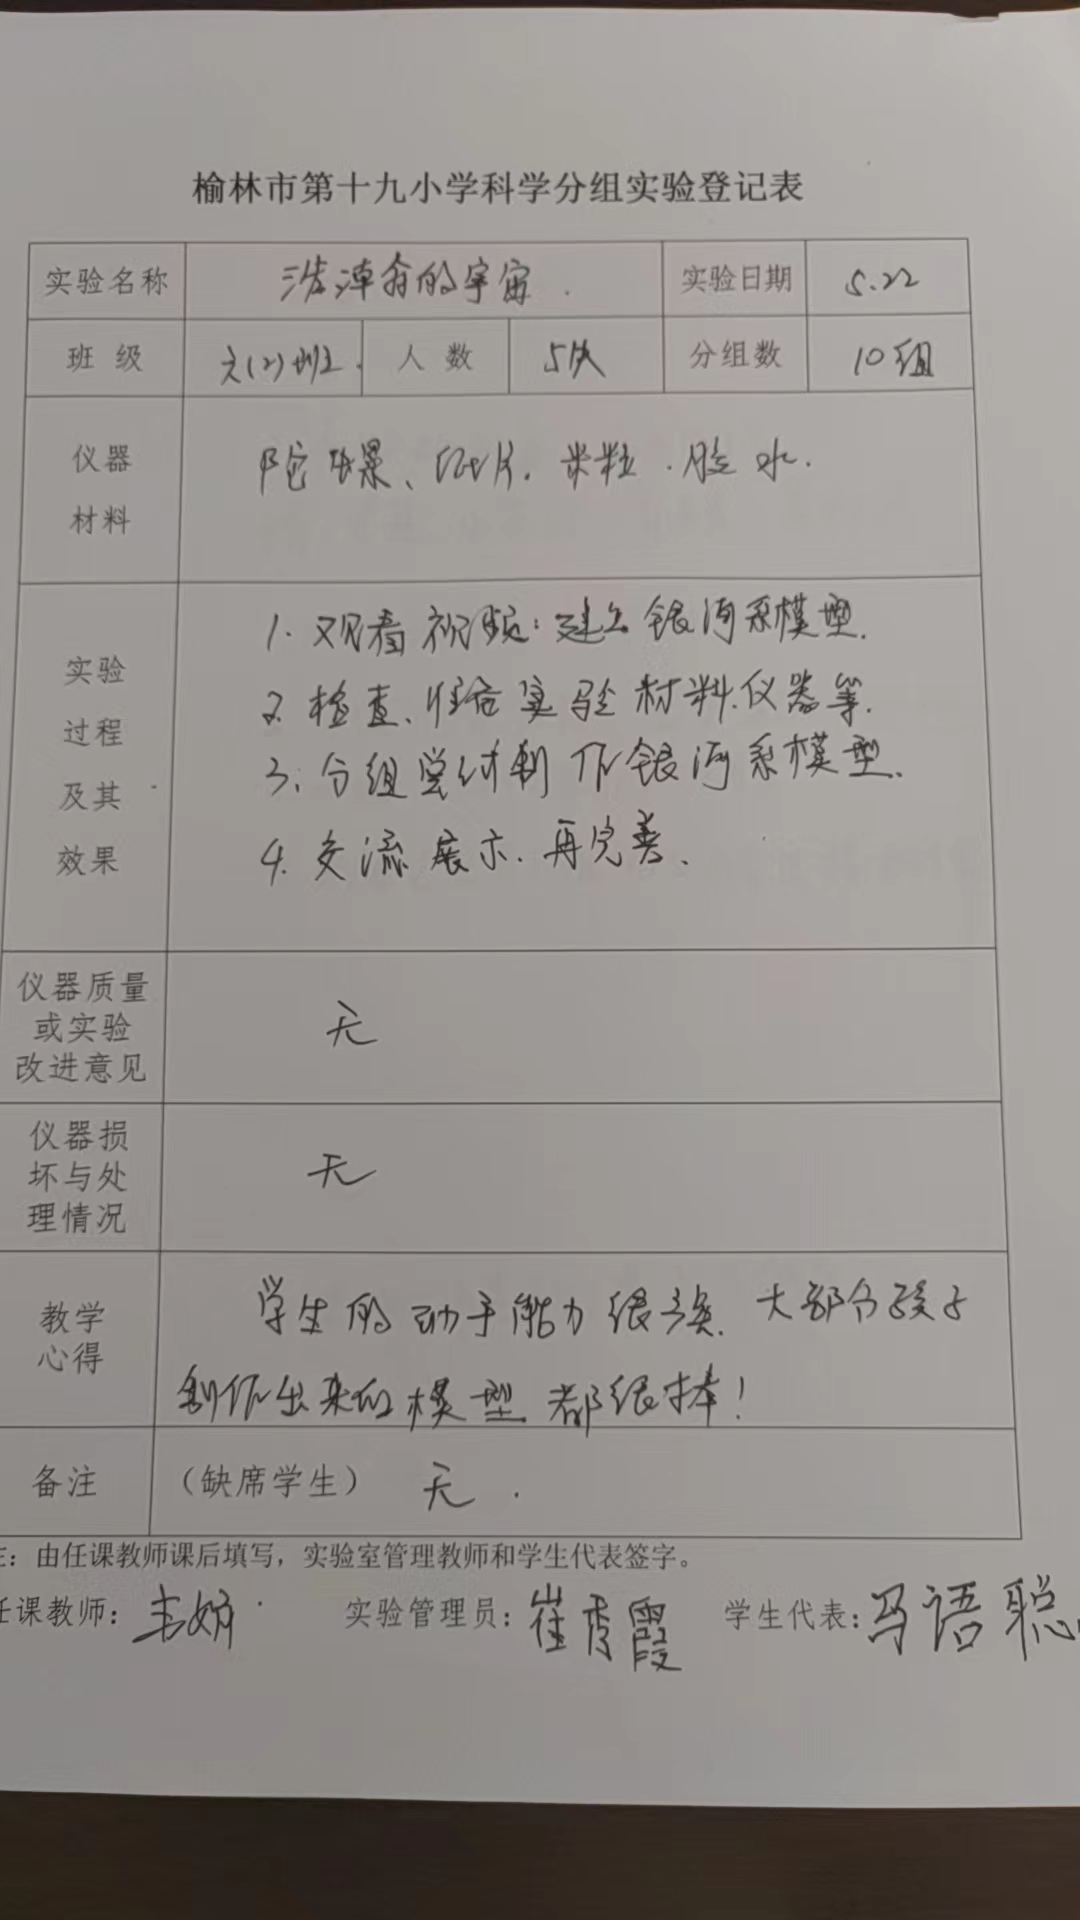 榆林市第十九小学科学分组实验登记表
实验名称 浩瀚的宇宙. 实验日期 5.22
班 级 六(2)班. 人 数 分组数 10组
仪器
材料
陀螺、纸片. 米粒. 胶水.
实验
过程
及其
效果
1. 观看视频:建立银河系模型.
2. 检查、准备实验材料.仪器等.
3. 分组尝试制作银河系模型.
4. 交流展示. 再完善、
仪器质量
或实验
改进意见
无
仪器损
坏与处
理情况
无
教学
心得
学生的动手能力很强. 大部分孩子
制作出来的模型都很棒!
备注 (缺席学生) 无.
注：由任课教师课后填写，实验室管理教师和学生代表签字。
任课教师: 实验管理员: 崔秀霞 学生代表: 冯语聪